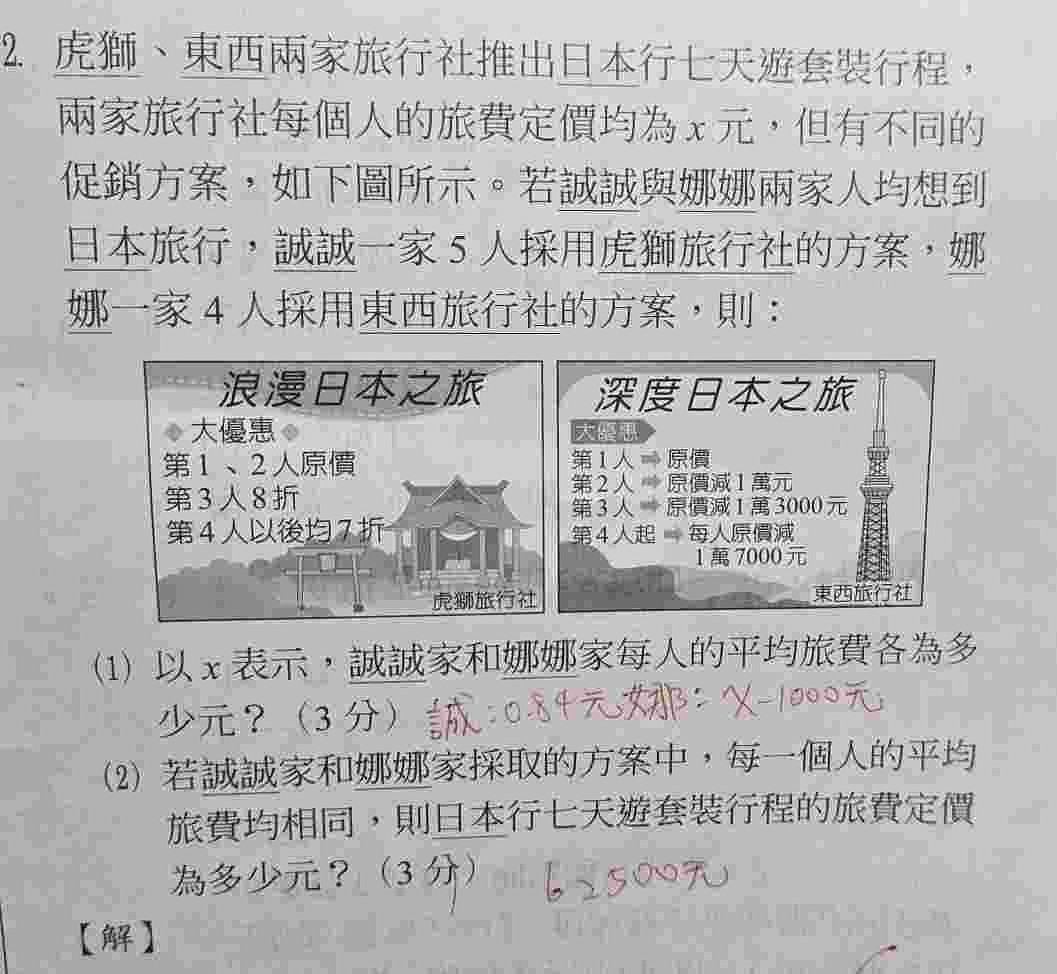 2. 虎獅、東西兩家旅行社推出日本行七天遊套裝行程，
兩家旅行社每個人的旅費定價均為 x 元，但有不同的
促銷方案，如下圖所示。若誠誠與娜娜兩家人均想到
日本旅行，誠誠一家 5 人採用虎獅旅行社的方案，娜
娜一家 4 人採用東西旅行社的方案，則：
浪漫日本之旅
大優惠
第1、2人原價
第3人8折
第4人以後均7折
虎獅旅行社
深度日本之旅
大優惠
第1人➡原價
第2人➡原價減1萬元
第3人➡原價減1萬3000元
第4人起➡每人原價減
1萬7000元
東西旅行社
(1) 以 x 表示，誠誠家和娜娜家每人的平均旅費各為多
少元？（3 分）誠:0.84元 娜: x-1000元
(2) 若誠誠家和娜娜家採取的方案中，每一個人的平均
旅費均相同，則日本行七天遊套裝行程的旅費定價
為多少元？（3 分） 62500元
【解】